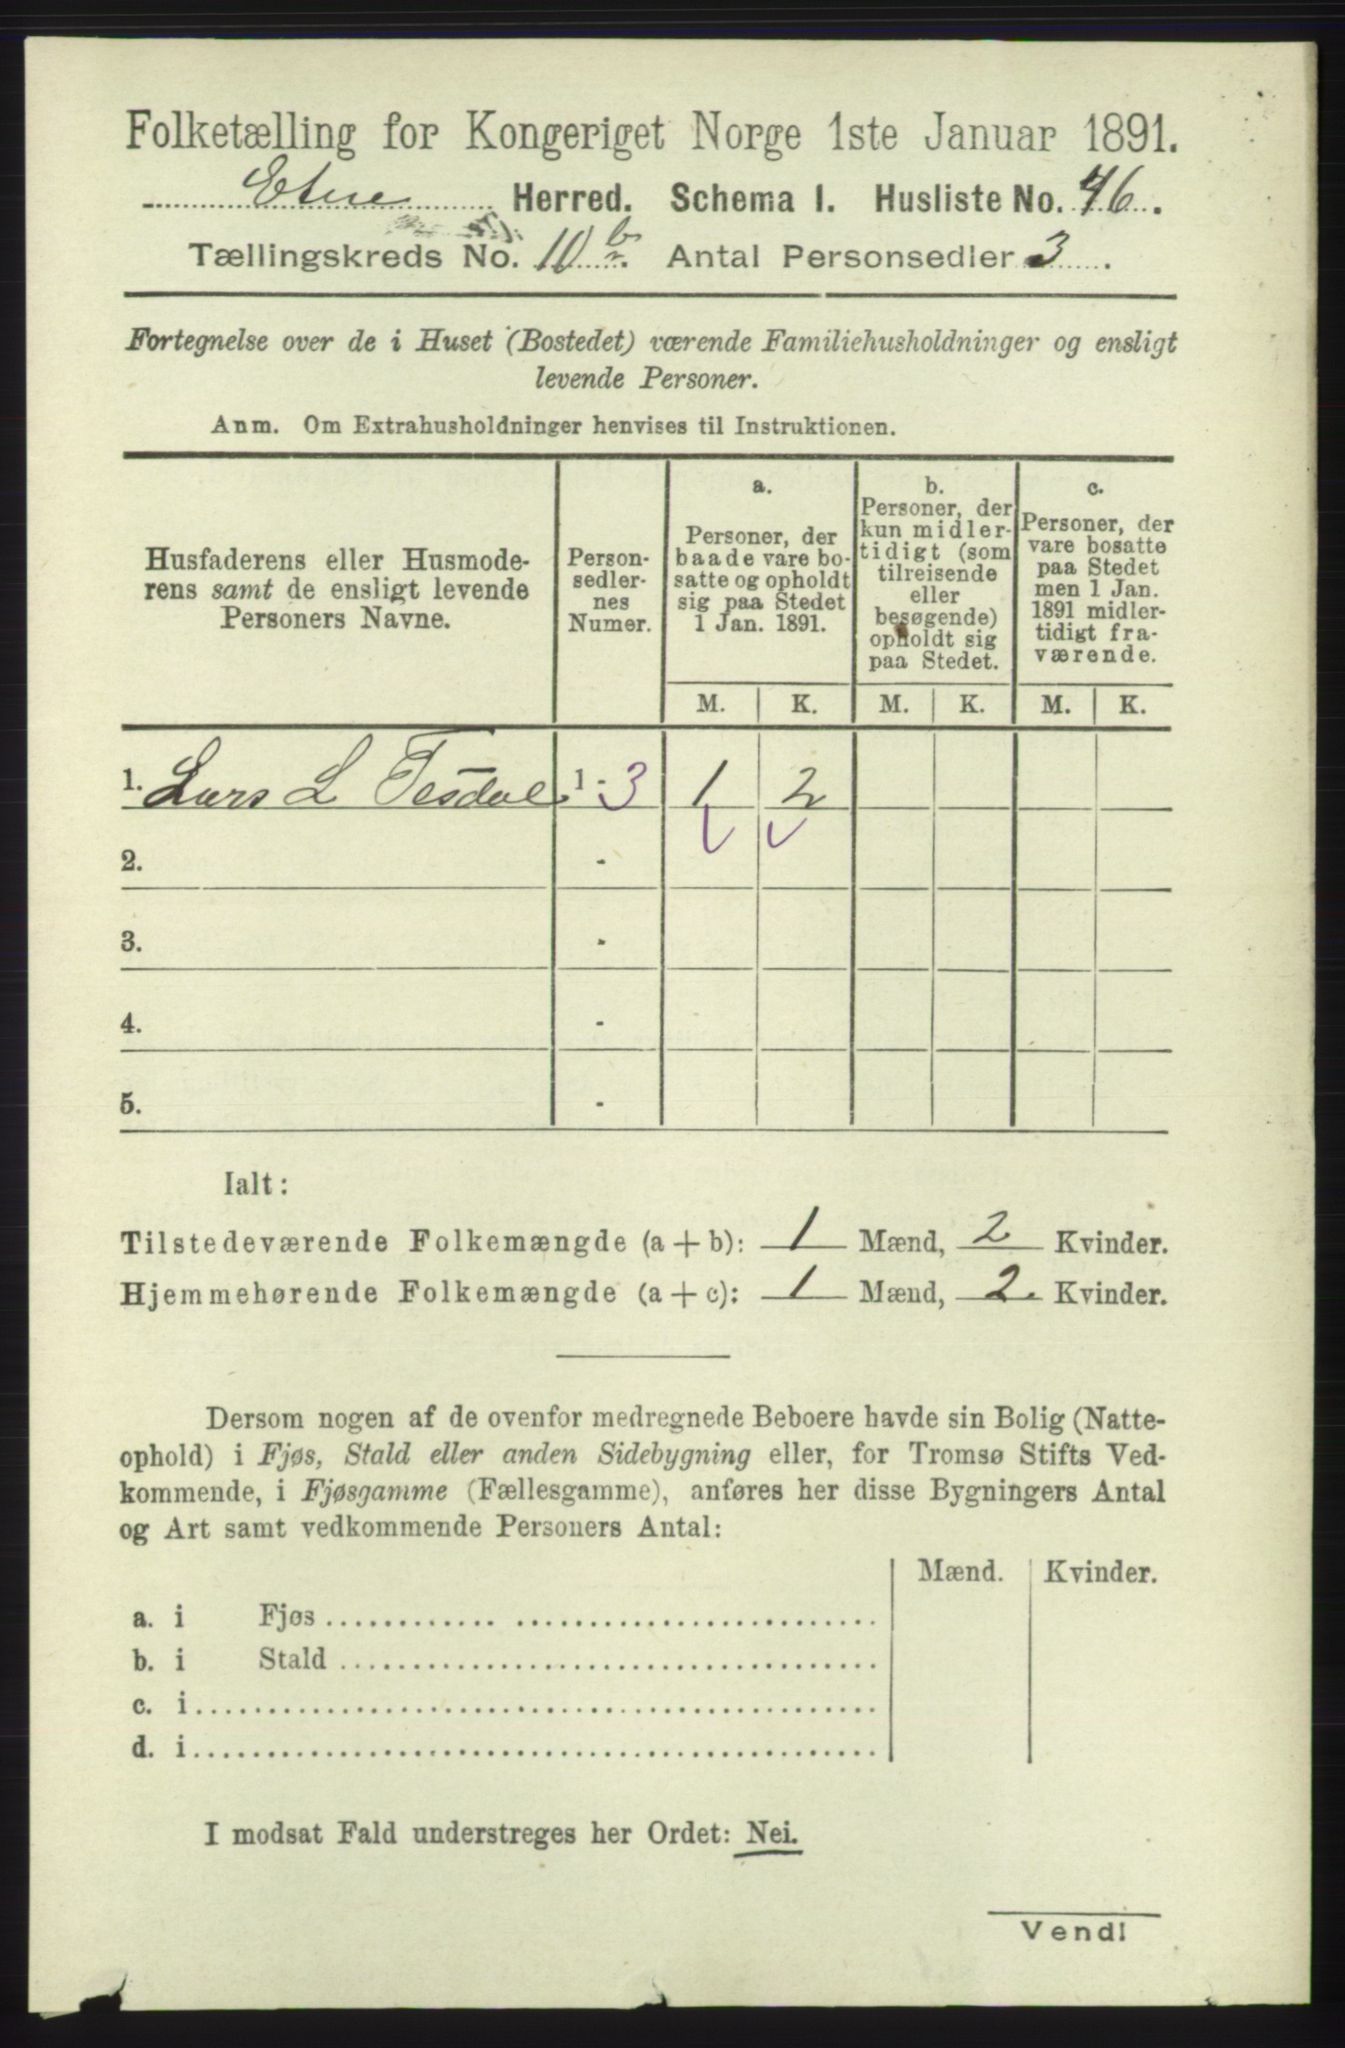 Folketælling for Kongeriget Norge 1ste Januar 1891.
Etne Herred. Schema I. Husliste No. 46.
Tællingskreds No. 10 b. Antal Personsedler 3.
Fortegnelse over de i Huset (Bostedet) værende Familiehusholdninger og ensligt
levende Personer.
Anm. Om Extrahusholdninger henvises til Instruktionen.
Husfaderens eller Husmode-
rens samt de ensligt levende
Personers Navne.
Person-
sedler-
nes
Numer.
a.
Personer, der
baade vare bo-
satte og opholdt
sig paa Stedet
1 Jan. 1891.
b.
Personer, der
kun midler-
tidigt (som
tilreisende
eller
besøgende)
opholdt sig
paa Stedet.
c.
Personer, der
vare bosatte
paa Stedet
men 1 Jan.
1891 midler-
tidigt fra-
værende.
M. K. M. K. M. K.
1. Lars L Tesdal 1 - 3 1 2
2. -
3. -
4. -
5. -
Ialt:
Tilstedeværende Folkemængde (a + b): 1 Mænd, 2 Kvinder.
Hjemmehørende Folkemængde (a + c): 1 Mænd, 2. Kvinder.
Dersom nogen af de ovenfor medregnede Beboere havde sin Bolig (Natte-
ophold) i Fjøs, Stald eller anden Sidebygning eller, for Tromsø Stifts Ved-
kommende, i Fjøsgamme (Fællesgamme), anføres her disse Bygningers Antal
og Art samt vedkommende Personers Antal:
Mænd. Kvinder.
a. i Fjøs
b. i Stald
c. i
d. i
I modsat Fald understreges her Ordet: Nei.
Vend!